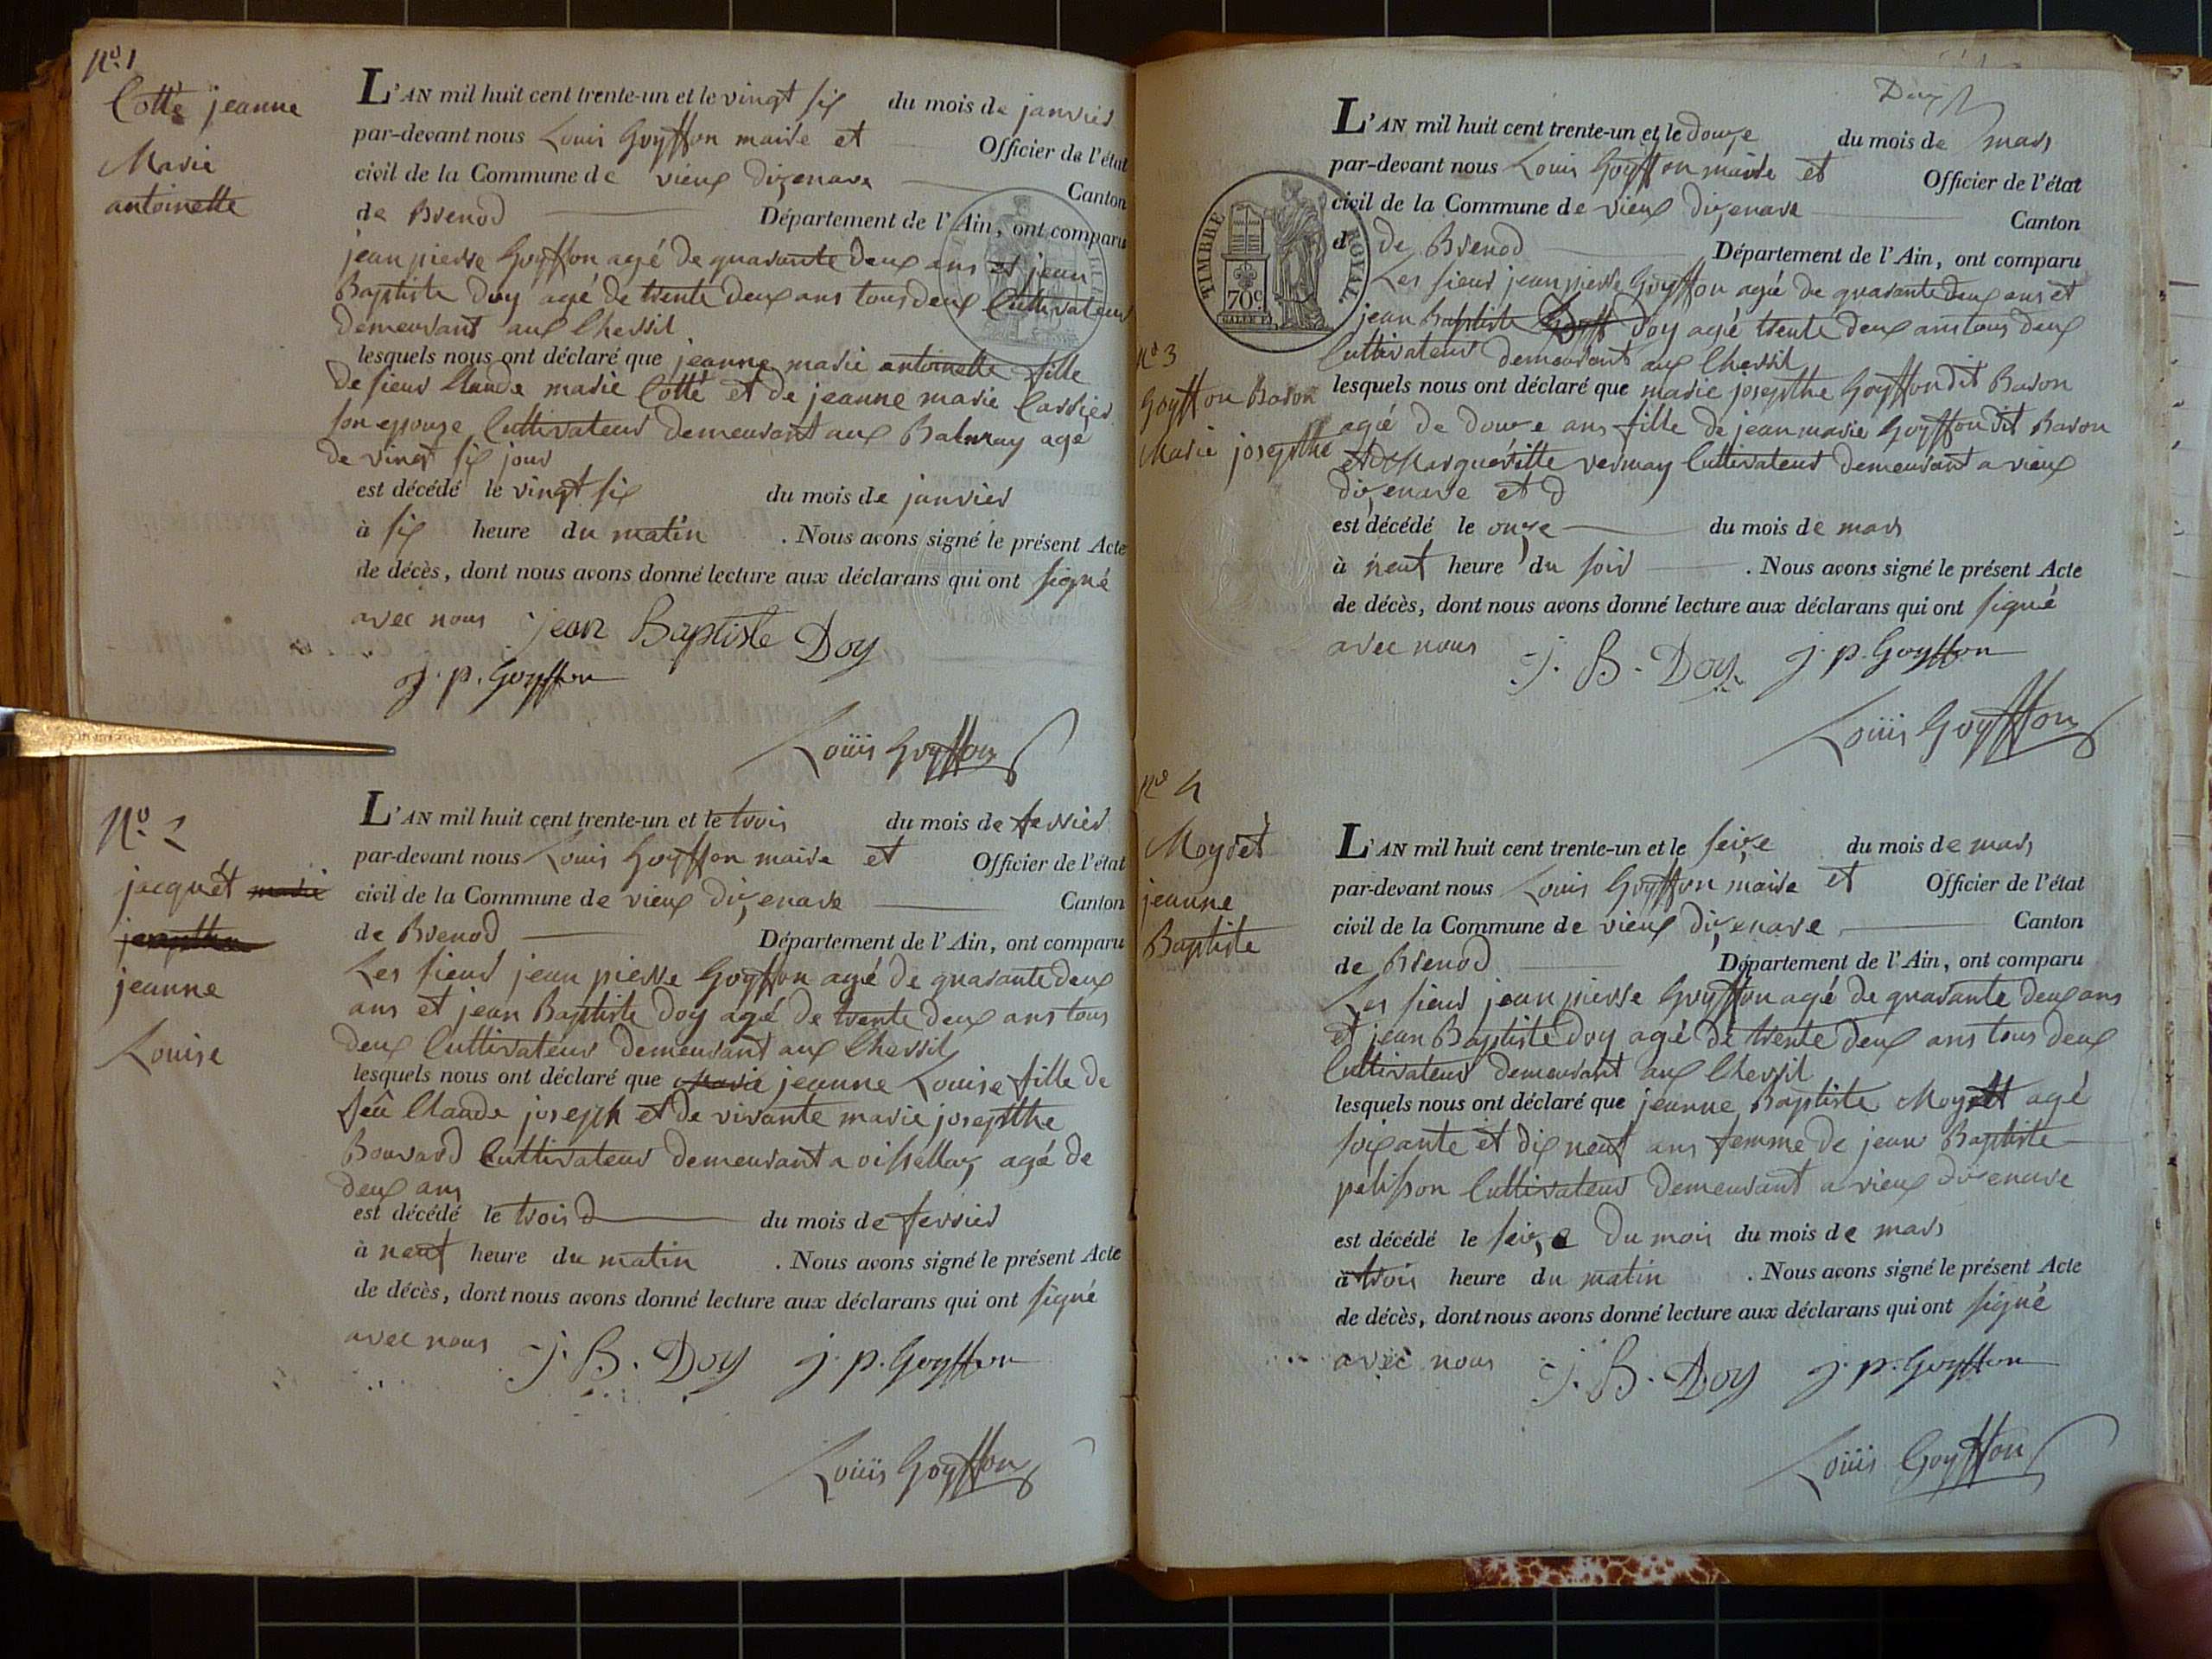 No. 1
Cotte jeanne
Marie
antoinette
L'AN mil huit cent trente-un et le vingt six du mois de janvier
par-devant nous Louis Goyffon maire et Officier de l'état
civil de la Commune de vieux dizenave Canton
de Brenod Département de l'Ain, ont comparu
jean pierre Goyffon agé de quarante deux ans et jean
Baptiste Doy agé de trente deux ans tous deux Cultivateur
demeurant aux Chevril
lesquels nous ont déclaré que jeanne marie antoinette fille
de sieur Claude marie Cotte et de jeanne marie Carrier
son epouze Cultivateur demeurant aux Balmay agé
de vingt six jour
est décédé le vingt six du mois de janvier
à six heure du matin . Nous avons signé le présent Acte
de décès, dont nous avons donné lecture aux déclarans qui ont signé
avec nous jean Baptiste Doy
j. p. Goyffon
Louis Goyffon
No. 2
jacquét marie
josepthe
jeanne
Louise
L'AN mil huit cent trente-un et le trois du mois de fevrier
par-devant nous Louis Goyffon maire et Officier de l'état
civil de la Commune de vieux dizenave Canton
de Brenod Département de l'Ain, ont comparu
Les sieur jean pierre Goyffon agé de quarante deux
ans et jean Baptiste Doy agé de trente deux ans tous
deux Cultivateur demeurant aux Chevril
lesquels nous ont déclaré que marie jeanne Louise fille de
feû Claude joseph et de vivante marie josepthe
Bouvard Cultivateur demeurant a oissellaz agé de
deux ans
est décédé le trois d du mois de fevrier
à neuf heure du matin . Nous avons signé le présent Acte
de décès, dont nous avons donné lecture aux déclarans qui ont signé
avec nous J. B. Doy j. p. Goyffon
Louis Goyffon
TIMBRE ROYAL
70c
No 3
Goyffon Baron
Marie josepthe
L'AN mil huit cent trente-un et le douze du mois de mars
par-devant nous Louis Goyffon maire et Officier de l'état
civil de la Commune de vieux dizenave Canton
d de Brenod Département de l'Ain, ont comparu
Les sieur jean pierre Goyffon agé de quarante deux ans et
jean Baptiste Doy agé trente deux ans tous deux
Cultivateur demeurant aux Chevril
lesquels nous ont déclaré que marie josepthe Goyffon dit Baron
agé de douze ans fille de jean marie Goyffon dit Baron
et de Marguéritte vermay Cultivateur demeurant a vieux
dizenave et d
est décédé le onze du mois de mars
à neuf heure du soir . Nous avons signé le présent Acte
de décès, dont nous avons donné lecture aux déclarans qui ont signé
avec nous J. B. Doy j. p. Goyffon
Louis Goyffon
No 4
Moyret
jeanne
Baptiste
L'AN mil huit cent trente-un et le seize du mois de mars
par-devant nous Louis Goyffon maire et Officier de l'état
civil de la Commune de vieux dizenave Canton
de Brenod Département de l'Ain, ont comparu
Les sieur jean pierre Goyffon agé de quarante deux ans
et jean Baptiste Doy agé de trente deux ans tous deux
Cultivateur demeurant aux Chevril
lesquels nous ont déclaré que jeanne Baptiste Moyret agé
soixante et dix neuf ans femme de jean Baptiste
pelisson Cultivateur demeurant a vieux dizenave
est décédé le seize du mois du mois de mars
à trois heure du matin . Nous avons signé le présent Acte
de décès, dont nous avons donné lecture aux déclarans qui ont signé
avec nous J. B. Doy j. p. Goyffon
Louis Goyffon